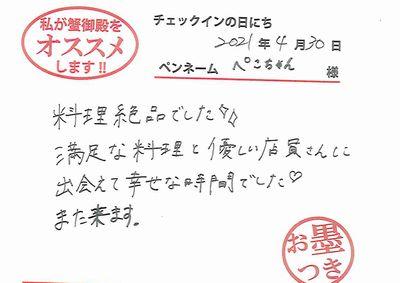 私が蟹御殿を
オススメ
します!!
チェックインの日にち
2021年4月30日
ペンネーム ぺこちゃん 様
料理絶品でした✨
満足な料理と優しい店員さんに
出会えて幸せな時間でした♡
また来ます。
お墨
つき